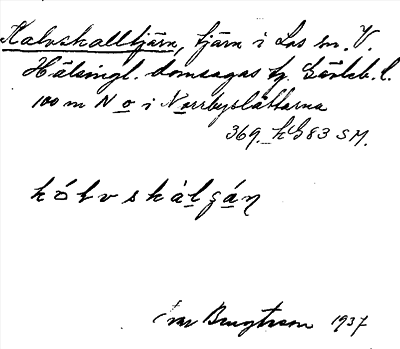 Kalvskalltjärn, tjärn i Los sn. V.
Hälsingl. domsagas tg. Gävleb. l.
100 m N o i Norrbyslåttarna
369. kG 83 SM.
kólvskàlgán
Bengtsson 1937